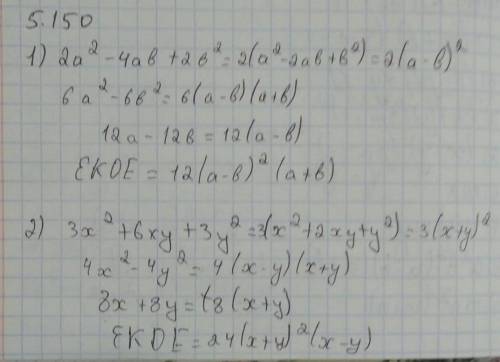 5.150
1) 2a² - 4aв + 2в² = 2(a² - 2aв + в²) = 2(a - в)²
6a² - 6в² = 6(a - в)(a + в)
12a - 12в = 12(a - в)
ЕКОЕ = 12(a - в)²(a + в)
2) 3x² + 6xy + 3y² = 3(x² + 2xy + y²) = 3(x + y)²
4x² - 4y² = 4(x - y)(x + y)
8x + 8y = 8(x + y)
ЕКОЕ = 24(x + y)²(x - y)